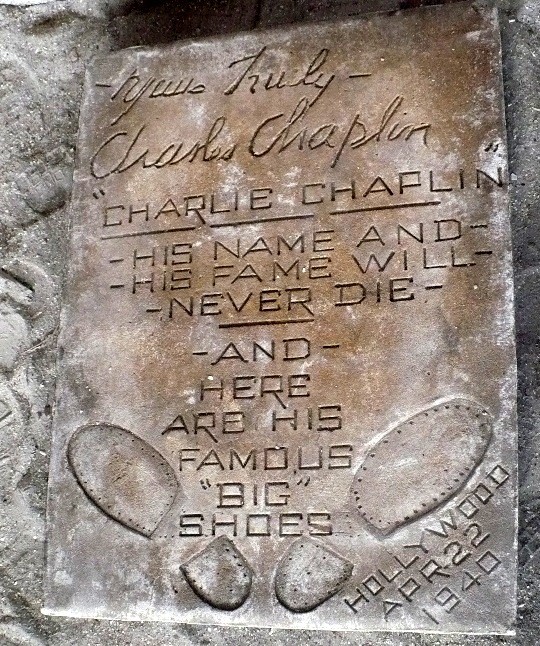 - Yours Truly -
Charles Chaplin
"CHARLIE CHAPLIN"
- HIS NAME AND -
- HIS FAME WILL -
- NEVER DIE -
- AND -
HERE
ARE HIS
FAMOUS
"BIG"
SHOES
HOLLYWOOD
APR 22
1940